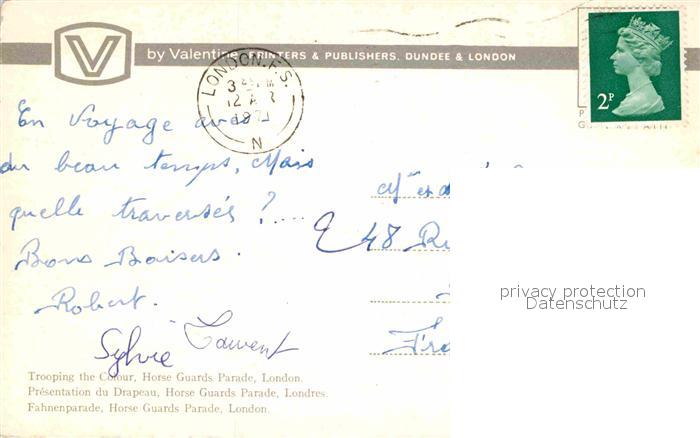 V
by Valentine, PRINTERS & PUBLISHERS. DUNDEE & LONDON
LONDON. F.S.
12
N
2P
En Voyage avec
du beau temps, Mais
quelle traversés ?....
Bons Baisers.
Robert.
Sylvie Laurent
48
privacy protection
Datenschutz
Trooping the Colour, Horse Guards Parade, London.
Présentation du Drapeau, Horse Guards Parade, Londres.
Fahnenparade, Horse Guards Parade, London.